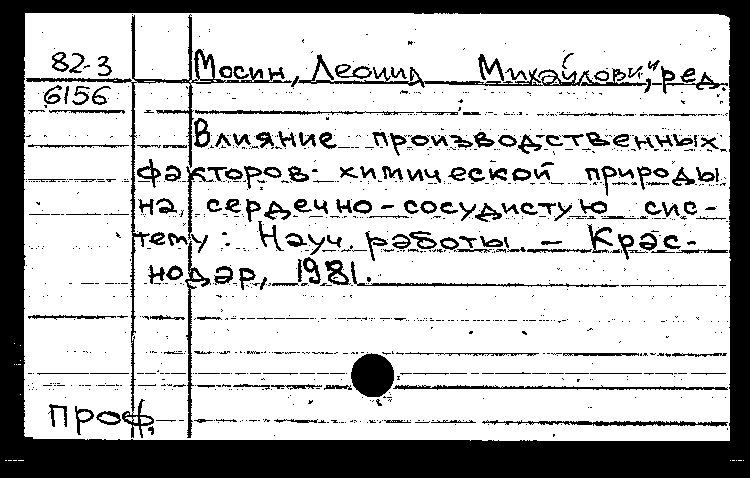 82-3 Мосин, Леонид Михайлович, ред.
6156
Влияние производственных
факторов химической природы
на сердечно-сосудистую сис-
тему: Науч. работы. - Крас-
нодар, 1981.
проф.